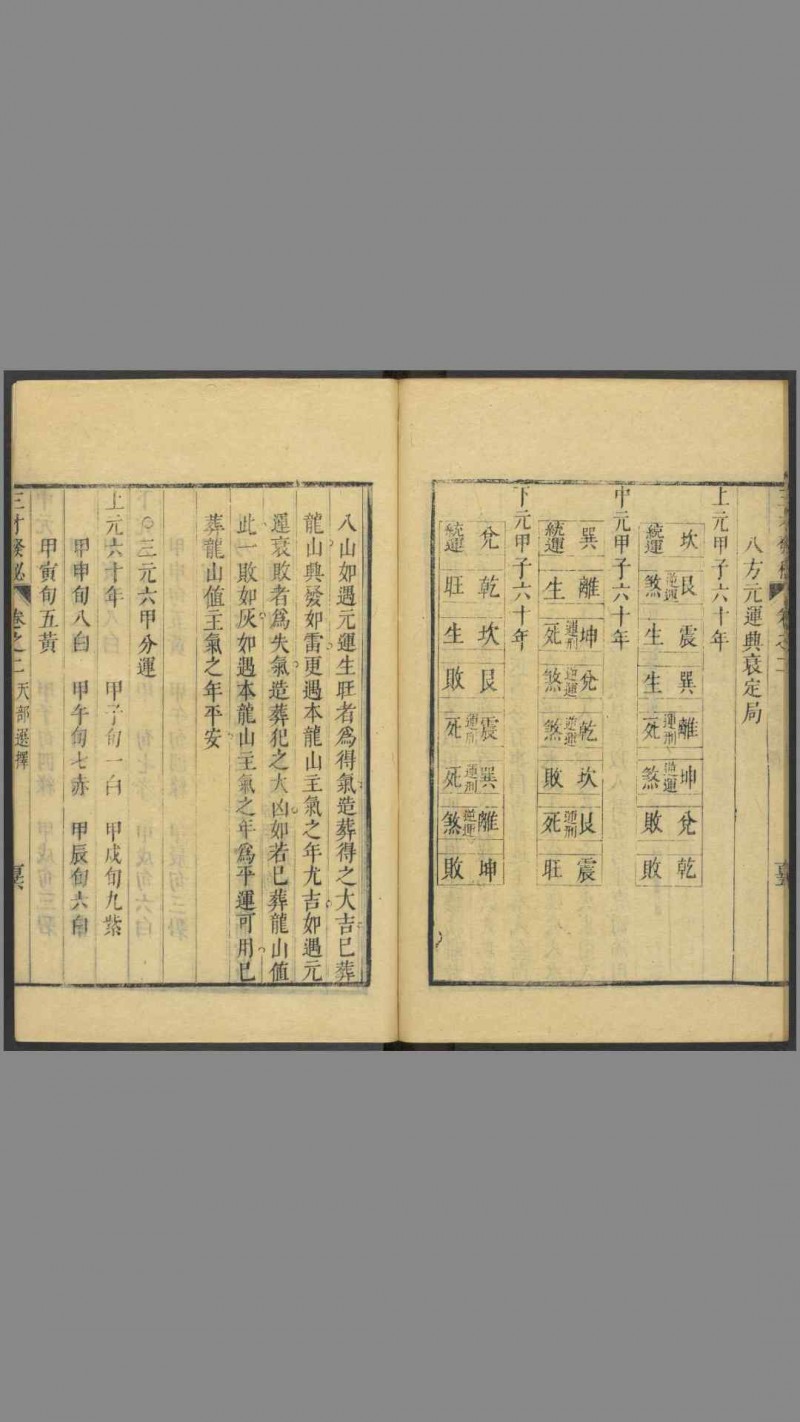 八方元運興衰定局
上元甲子六十年
坎 統運
艮 逆運 煞
震 生
巽 生
離 運刑 死
坤 逆運 煞
兌 敗
乾 敗
中元甲子六十年
巽 統運
離 生
坤 運刑 死
兌 逆運 煞
乾 逆運 煞
坎 敗
艮 運刑 死
震 旺
下元甲子六十年
兌 統運
乾 旺
坎 生
艮 敗
震 運刑 死
巽 運刑 死
離 逆運 煞
坤 敗
八山如遇元運生旺者爲得氣造葬得之大吉已葬
龍山興發如雷更遇本龍山主氣之年尤吉如遇元
運衰敗者爲失氣造葬犯之大凶如若已葬龍山値
此一敗如灰如遇本龍山主氣之年爲平運可用已
葬龍山値主氣之年平安
○三元六甲分運
上元六十年 甲子旬一白 甲戌旬九紫
甲申旬八白 甲午旬七赤 甲辰旬六白
甲寅旬五黃
三才發秘 卷之二 天部選擇